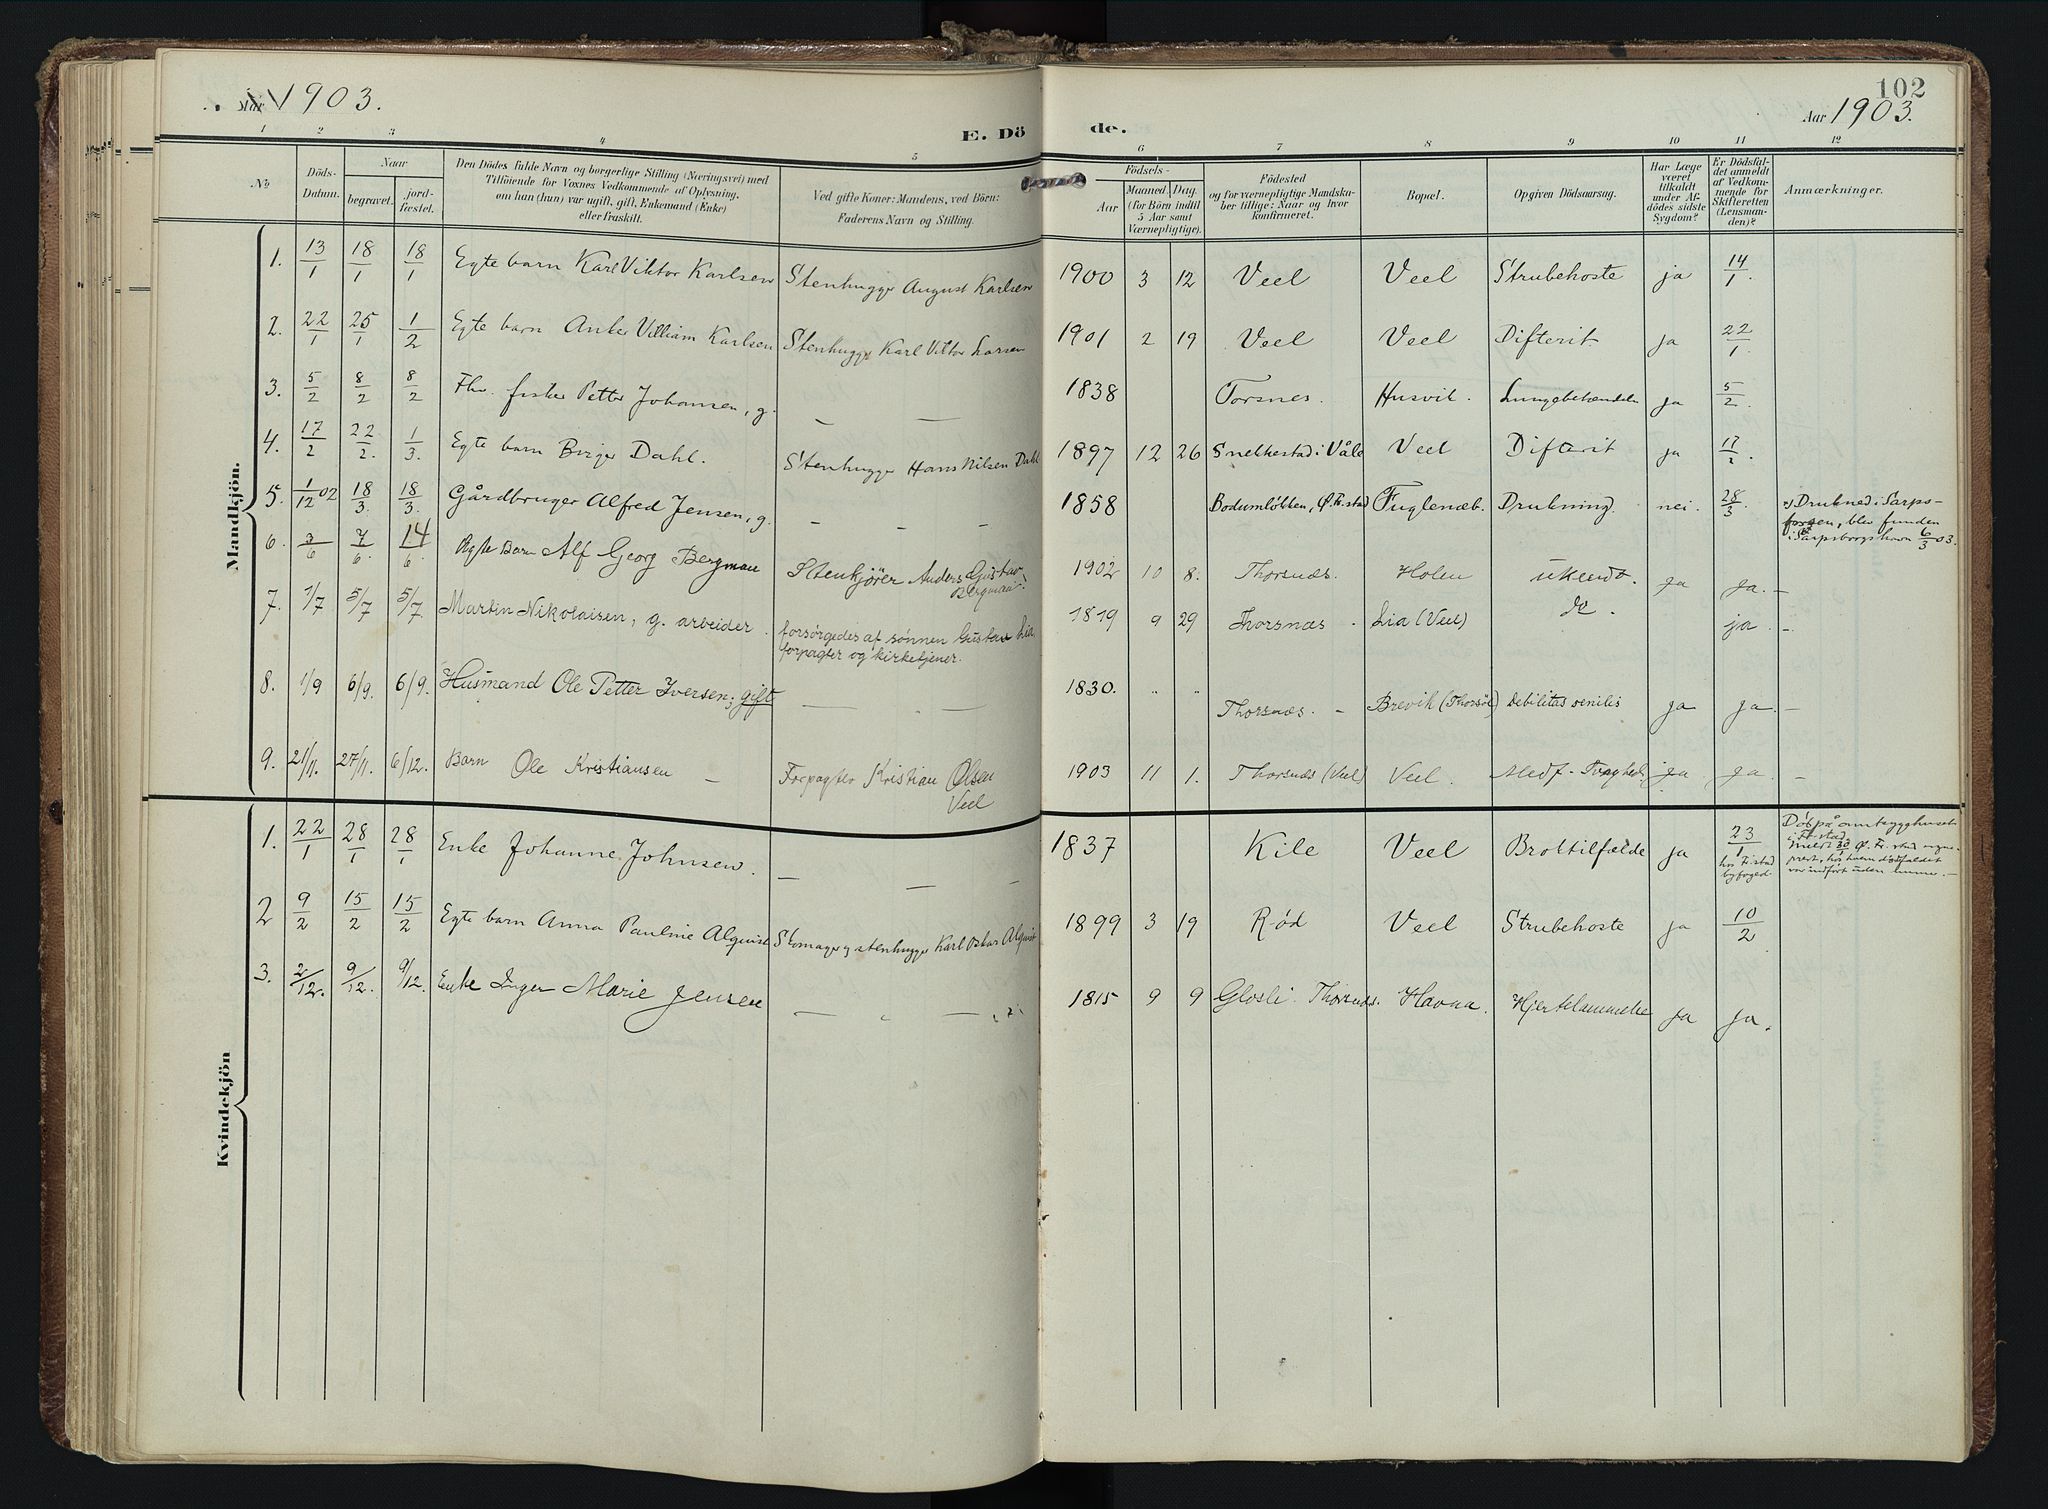 Aar 1903.
102
Aar 1903.
E. Dö de.
1 2 3 4 5 6 7 8 9 10 11 12
No
Döds-Datum.
Naar
begravet.
jord-fæstet.
Den Dödes fulde Navn og borgerlige Stilling (Næringsvei) med
Tilföiende for Voxnes Vedkommende af Oplysning,
om han (hun) var ugift, gift, Enkemand (Enke)
eller fraskilt.
Ved gifte Koner: Mandens, ved Börn:
Faderens Navn og Stilling.
Födsels-
Aar
Maaned. Dag.
(for Börn indtil
5 Aar samt
Værnepligtige).
Födested
og for værnepligtige Mandska-
ber tillige: Naar og hvor
konfirmeret.
Bopæl.
Opgiven Dödsaarsag.
Har Læge
været
tilkaldt
under Af-
dödes sidste
Sygdom?
Er Dödsfal-
det anmeldt
af Vedkom-
mende for
Skifteretten
(Lensman-
den)?
Anmærkninger.
Mandkjön.
1. 13/1 18/1 18/1 Egte barn Karl Viktor Karlsen Stenhugger August Karlsen 1900 3 12 Veel Veel Strubehoste ja 14/1.
2. 22/1 25/1 1/2 Egte barn Anker Villiam Karlsen Stenhugger Karl Viktor Larsen 1901 2 19 Veel Veel Difterit. ja 22/1.
3. 5/2 8/2 8/2 Fhv. fisker Petter Johansen, g. — — 1838 Torsnes. Husvik. Lungebetændelse ja 5/2.
4. 17/2 22/2. 1/3. Egte barn Birger Dahl. Stenhugger Hans Nilsen Dahl 1897 12 26 Snelkestad i Våle Veel Difterit ja 17/2.
5. 1/12 02 18/3. 18/3. Gårdbruger Alfred Jensen, g. — — 1858 Bodumløkken, Ø. Fr.stad Fuglenæb. Drukning. nei. 28/3. Drukned i Sarps-
fossen, blev funden
i Sarpsborgs havn 6/3 03.
6. 3/6 7/6. 14/6. Ægte Barn Alf Georg Bergman Stenkjører Anders Gustav
Bergman. 1902 10 8. Thorsnæs. Holen ukendt. ja ja. —
7. 1/7 5/7 5/7. Martin Nikolaisen, g. arbeider. forsørgedes af sønnen Gustav Lia,
forpagter og kirketjener. 1819 9 29 Thorsnæs - Lia (Veel) do. ja. —
8. 1/9 6/9. 6/9. Husmand Ole Petter Iversen; gift — — 1830. " " Thorsnæs. - Brevik (Thorsö) Debilitas senilis ja ja. —
9. 21/11. 27/11. 6/12. Barn Ole Kristiansen — Forpagter Kristian Olsen
Veel 1903 11 1. Thorsnæs (Veel) Veel. Medf. Svaghed. ja. ja. —
Kvindekjön
1. 22/1 28/1 28/1 Enke Johanne Johnsen. — — — 1837 Kile Veel Broktilfælde ja 23/1
hos Fr.stad
byfoged. Død på amtssyghuset
i Fr.stad.
2 9/2 15/2 15/2 Egte barn Anna Pauline Alquist Skomager og stenhugger Karl Oskar Alquist 1899 3 19 Rød Veel Strubehoste ja 10/2
3. 2/12. 9/12. 9/12. Enke Inger Marie Jensen — " — 1815 9 9 Glosli. Thorsnæs. Havna. Hjertelammelse ja ja.